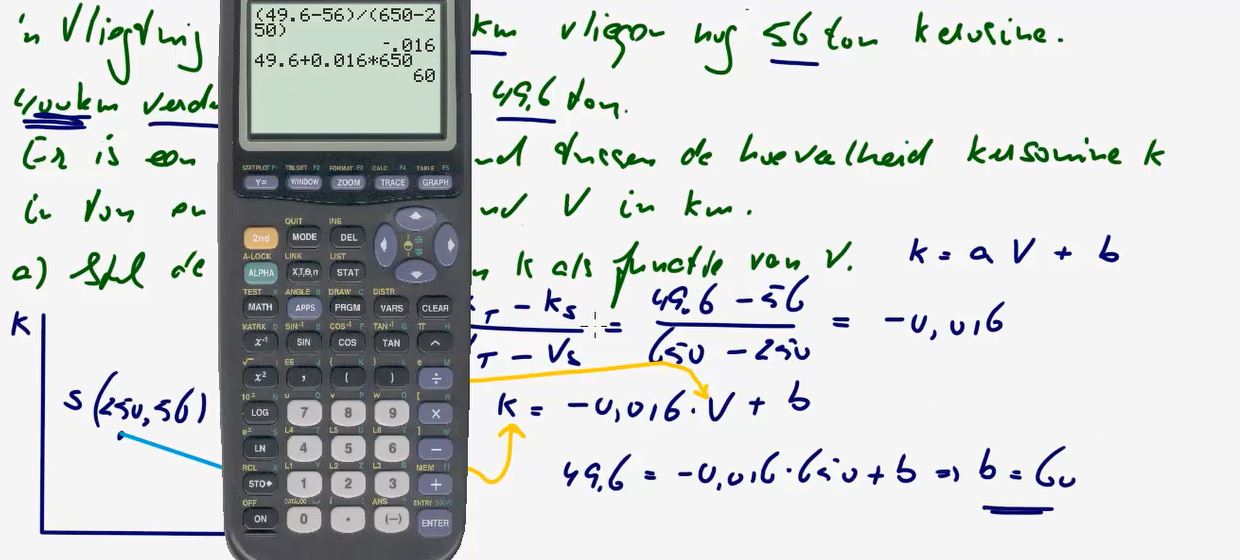 in Vliegtuig km vliegen nog 56 ton kerosine.
400km 49.6 ton.
Er is een tussen de hoeveelheid k
in ton en V in km.
a) Stel de k als functie van V. k = a V + b
k_T - k_S / V_T - V_S = 49.6 - 56 / 650 - 250 = -0,016
K
S (250, 56)
k = -0,016 · V + b
49.6 = -0,016 · 650 + b => b = 60
(49.6-56)/(650-2
50)
-.016
49.6+0.016*650
60
STATPLOT F1 TBLSET F2 FORMAT F3 CALC F4 TABLE F5
Y= WINDOW ZOOM TRACE GRAPH
QUIT INS
2nd MODE DEL
A-LOCK LINK LIST
ALPHA X,T,Θ,n STAT
TEST A ANGLE B DRAW C DISTR
MATH APPS PRGM VARS CLEAR
MATRX D SIN⁻¹ E COS⁻¹ F TAN⁻¹ G π H
x⁻¹ SIN COS TAN ^
x² , ( ) ÷
LOG 7 8 9 ×
LN 4 5 6 −
RCL X L1 Y L2 Z L3 θ MEM "
STO► 1 2 3 +
OFF CATALOG ANS ENTRY SOLVE
ON 0 . (−) ENTER